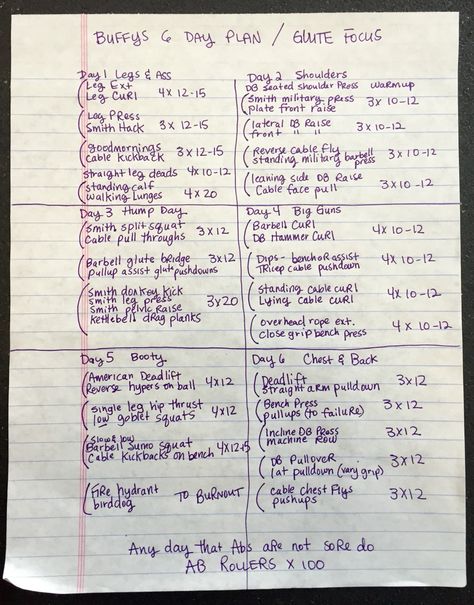 BUFFYS 6 DAY PLAN / GLUTE FOCUS
Day 1 Legs & Ass
Leg Ext
Leg Curl 4x12-15
Leg Press
Smith Hack 3x12-15
Goodmornings
Cable kickback 3x12-15
straight leg deads 4x10-12
standing calf
walking lunges 4x20
Day 2 Shoulders
DB seated shoulder Press WARMUP
Smith military press
plate front raise 3x10-12
lateral DB Raise
front " " 3x10-12
reverse cable fly
standing military barbell press 3x10-12
leaning side DB Raise
Cable face pull 3x10-12
Day 3 Hump Day
Smith split squat
Cable pull throughs 3x12
Barbell glute bridge 3x12
pullup assist glute pushdowns
Smith donkey kick
smith leg press 3x20
smith pelvic raise
kettlebell drag planks
Day 4 Big Guns
Barbell Curl
DB Hammer Curl 4x10-12
Dips - bench or assist
Tricep cable pushdown 4x10-12
standing cable curl
Lying cable curl 4x10-12
overhead rope ext.
close grip bench press 4x10-12
Day 5 Booty
American Deadlift
Reverse hypers on ball 4x12
single leg hip thrust
low goblet squats 4x12
slow & low
Barbell Sumo squat
Cable Kickbacks on bench 4x12-15
Fire hydrant
birddog TO BURNOUT
Day 6 Chest & Back
Deadlift
straight arm pulldown 3x12
Bench Press
pullups (to failure) 3x12
Incline DB Press
machine Row 3x12
DB Pullover
lat pulldown (vary grip) 3x12
cable chest flys
pushups 3x12
Any day that Abs are not sore do
AB ROLLERS x 100